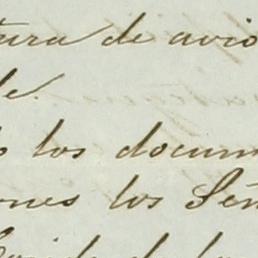 tura de avio
le.
los docum
ones los Señ